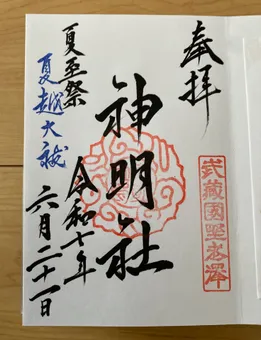 奉拝
武蔵國埜老澤
神明社
夏至祭
令和七年
夏越大祓
六月二十一日